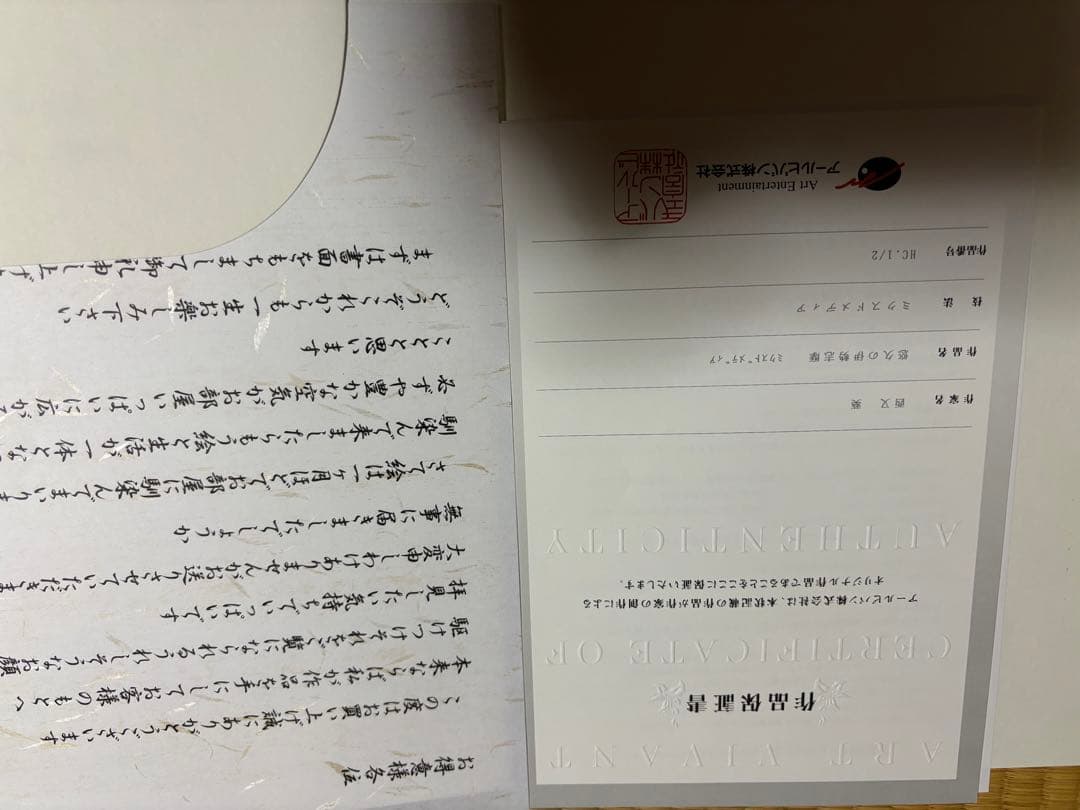 ART VIVANT
作品保証書
CERTIFICATE OF
アールビバン株式会社は、本状記載の作品が作家の創作による
オリジナル作品であることをここに保証いたします。
AUTHENTICITY
作家名 西又 葵
作品名 悠久の伊勢志摩 ミクストﾞメディア
技法 ミクスドメディア
作品番号 HC.1/2
Art Entertainment
アールビバン株式会社
お得意様各位
この度はお買い上げ誠にありがとうございます
本来ならば私が作品を手にしてお客様のもとへ
駆けつけそれをご覧になられるうれしそうなお顔
拝見したい気持ちでいっぱいです
大変申しわけありませんがお送りさせていただきま
無事に届きましたでしょうか
さて絵は一ヶ月ほどでお部屋に馴染んでまいりま
馴染んで来ましたらもう絵と生活が一体とな
必ずや豊かな空気がお部屋いっぱいに広が
ことと思います
どうぞこれからも一生お楽しみ下さい
まずは書面をもちまして御礼申し上げ